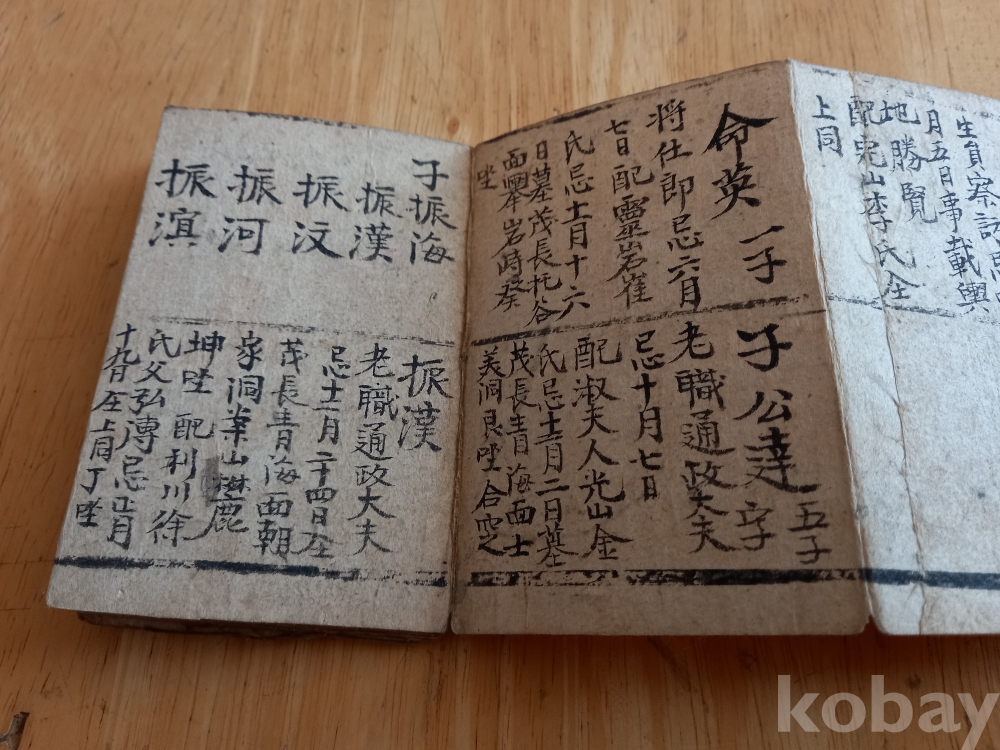 生員察訪忌
月五日事載輿
地勝覽
配完山李氏全
上同
命英 一子
将仕郎忌六月
七日 配靈岩崔
氏忌十一月十六
日墓茂長托谷
面轝岩時癸
坐
子公達 字 五子
老職通政大夫
忌十月七日
配淑夫人光山金
氏忌十二月二日墓
茂長青海面士
美洞艮坐合窆
子振海
振漢
振汶
振河
振濵
振漢
老職通政大夫
忌十二月二十四日仝
茂長青海面朝
家洞案山麓
坤坐 配利川徐
氏父弘溥忌正月
十九日左上同丁坐
kobay